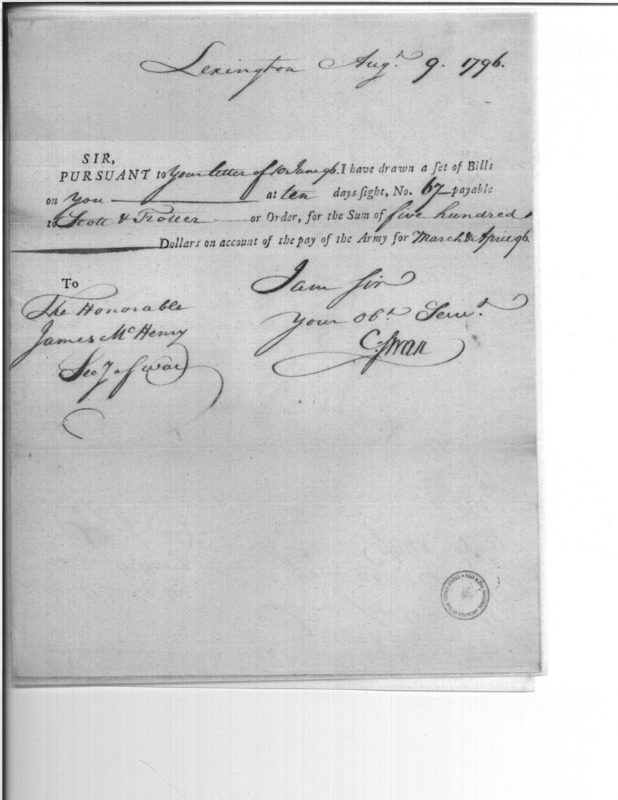 Lexington Augt. 9. 1796.
SIR,
PURSUANT to your letter of 10 June 96. I have drawn a set of Bills
on you at ten days sight, No. 67 payable
to Scott & Trotter or Order, for the Sum of five hundred
Dollars on account of the pay of the Army for March & April 96
To
The Honorable
James McHenry
Secy of war
I am Sir
your obt. Servt.
C. Swan